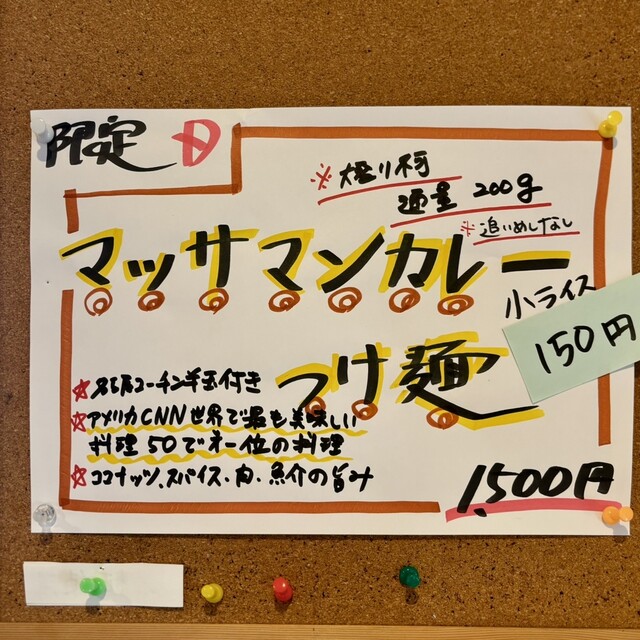 限定 D
※大盛り不可
通量 200g
※追いめしなし
マッサマンカレー
小ライス
150円
つけ麺
☆名古屋コーチン半玉付き
☆アメリカCNN世界で最も美味しい
料理50で第一位の料理
☆ココナッツ、スパイス、肉、魚介の旨み
1,500円